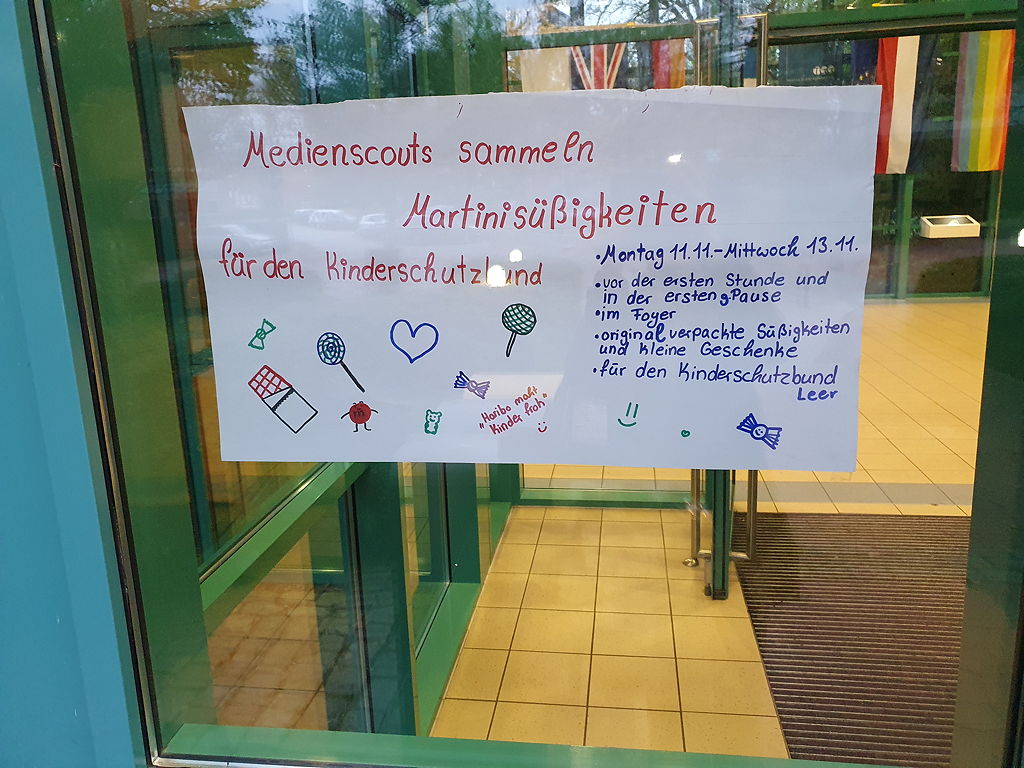 Medienscouts sammeln
Martinisüßigkeiten
für den Kinderschutzbund
• Montag 11.11.-Mittwoch 13.11.
• vor der ersten Stunde und
in der ersten g.Pause
• im Foyer
• original verpackte Süßigkeiten
und kleine Geschenke
• für den Kinderschutzbund
Leer
m
"Haribo maht
Kinder froh"